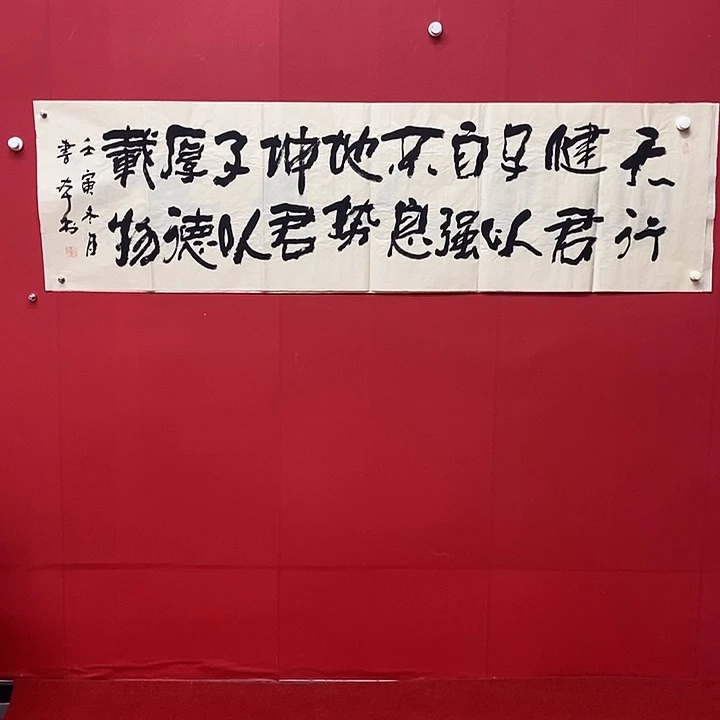 天行
健君
子以
自强
不息
地势
坤君
子以
厚德
載物
壬寅冬月